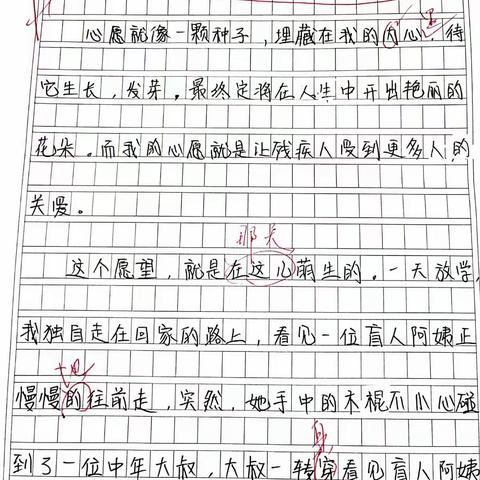 心愿就像一颗种子，埋藏在我的内心里，待
它生长，发芽。最终定将在人生中开出艳丽的
花朵。而我的心愿就是让残疾人受到更多人的
关爱。
那天
这个愿望，就是在这儿萌生的。一天放学，
我独自走在回家的路上，看见一位盲人阿姨正
地
慢慢的往前走，突然，她手中的木棍不小心碰
身
到了一位中年大叔，大叔一转穿看见盲人阿姨